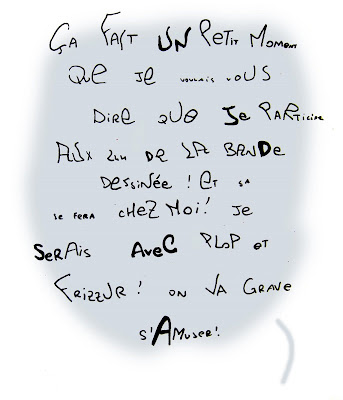 ÇA FAIT UN PETIT MOMENT
QUE JE VOULAIS VOUS
DIRE QUE JE PARTICIPE
AUX 24H DE LA BANDE
DESSINÉE ! ET SA
SE FERA CHEZ MOI! JE
SERAIS AVEC PLOP ET
FRIZZUR! ON VA GRAVE
S'AMUSER!